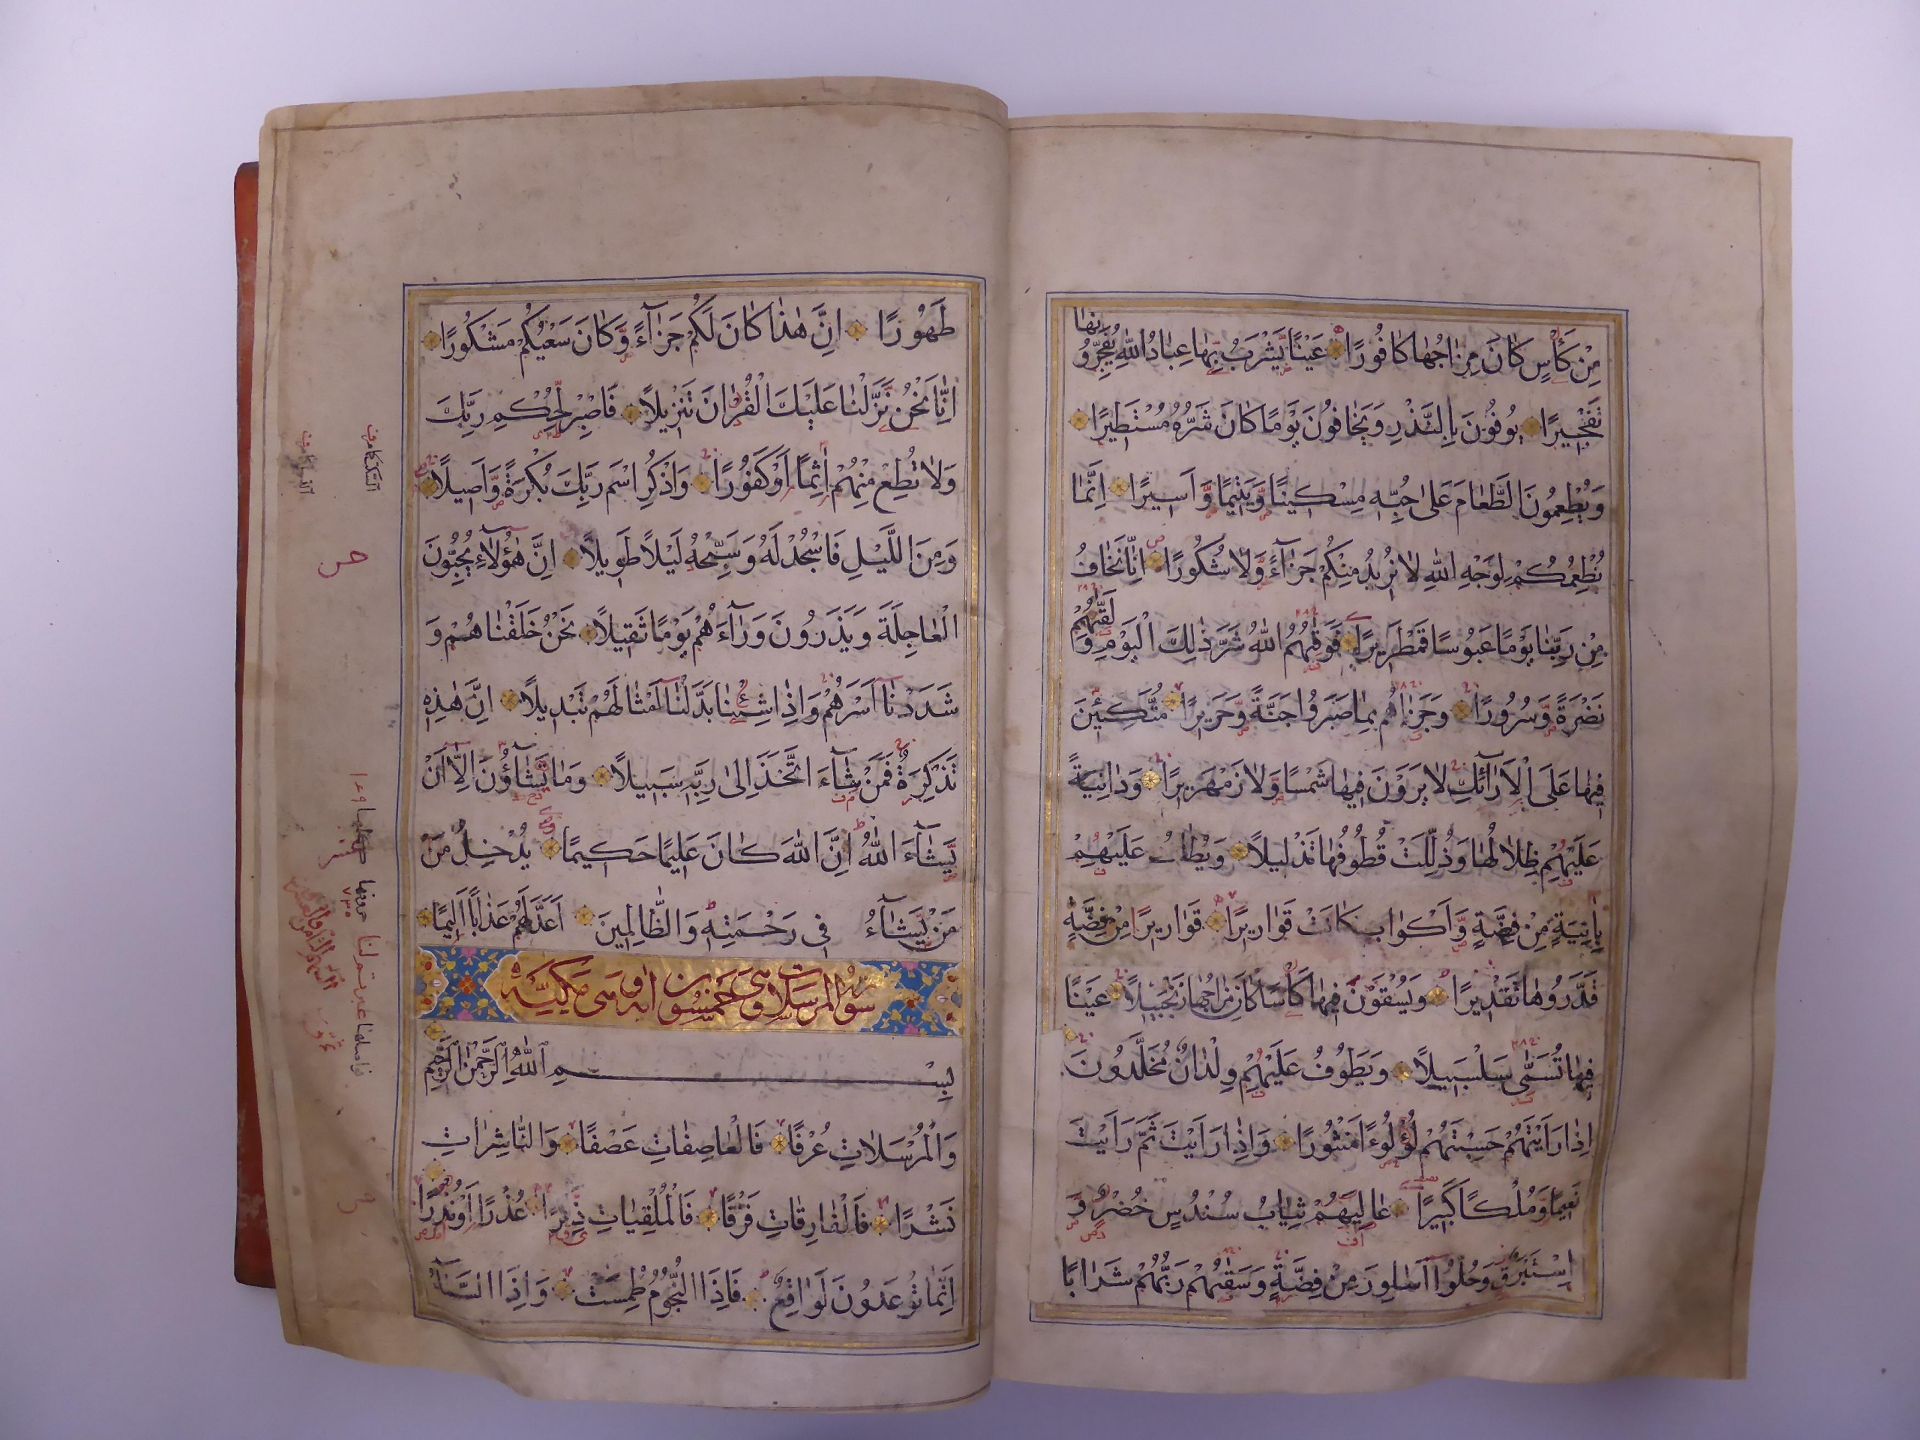 مِنْ كَأْسٍ كَانَ مِزَاجُهَا كَافُورًا عَيْنًا يَشْرَبُ بِهَا عِبَادُ اللّٰهِ يُفَجِّرُونَهَا
تَفْجِيرًا يُوفُونَ بِالنَّذْرِ وَيَخَافُونَ يَوْمًا كَانَ شَرُّهُ مُسْتَطِيرًا
وَيُطْعِمُونَ الطَّعَامَ عَلٰى حُبِّهِ مِسْكِينًا وَيَتِيمًا وَأَسِيرًا اِنَّمَا
نُطْعِمُكُمْ لِوَجْهِ اللّٰهِ لَا نُرِيدُ مِنْكُمْ جَزَآءً وَّلَا شُكُورًا اِنَّا نَخَافُ
مِنْ رَبِّنَا يَوْمًا عَبُوسًا قَمْطَرِيرًا فَوَقٰيهُمُ اللّٰهُ شَرَّ ذٰلِكَ الْيَوْمِ وَلَقّٰيهُمْ
نَضْرَةً وَّسُرُورًا وَجَزٰاهُمْ بِمَا صَبَرُوا جَنَّةً وَّحَرِيرًا مُتَّكِئِينَ
فِيهَا عَلَى الْاَرَآئِكِ لَا يَرَوْنَ فِيهَا شَمْسًا وَّلَا زَمْهَرِيرًا وَدَانِيَةً
عَلَيْهِمْ ظِلَالُهَا وَذُلِّلَتْ قُطُوفُهَا تَذْلِيلًا وَيُطَافُ عَلَيْهِمْ
بِاٰنِيَةٍ مِنْ فِضَّةٍ وَّاَكْوَابٍ كَانَتْ قَوَارِيرًا قَوَارِيرًا مِنْ فِضَّةٍ
قَدَّرُوهَا تَقْدِيرًا وَيُسْقَوْنَ فِيهَا كَأْسًا كَانَ مِزَاجُهَا زَنْجَبِيلًا عَيْنًا
فِيهَا تُسَمّٰى سَلْسَبِيلًا وَيَطُوفُ عَلَيْهِمْ وِلْدَانٌ مُخَلَّدُونَ
اِذَا رَاَيْتَهُمْ حَسِبْتَهُمْ لُؤْلُؤًا مَنْثُورًا وَاِذَا رَاَيْتَ ثَمَّ رَاَيْتَ
نَعِيمًا وَمُلْكًا كَبِيرًا عَالِيَهُمْ ثِيَابُ سُنْدُسٍ خُضْرٌ وَّ
اِسْتَبْرَقٌ وَحُلُّوا اَسَاوِرَ مِنْ فِضَّةٍ وَسَقٰيهُمْ رَبُّهُمْ شَرَابًا
طَهُورًا اِنَّ هٰذَا كَانَ لَكُمْ جَزَآءً وَّكَانَ سَعْيُكُمْ مَشْكُورًا
اِنَّا نَحْنُ نَزَّلْنَا عَلَيْكَ الْقُرْاٰنَ تَنْزِيلًا فَاصْبِرْ لِحُكْمِ رَبِّكَ
وَلَا تُطِعْ مِنْهُمْ اٰثِمًا اَوْ كَفُورًا وَاذْكُرِ اسْمَ رَبِّكَ بُكْرَةً وَّاَصِيلًا
وَمِنَ اللَّيْلِ فَاسْجُدْ لَهُ وَسَبِّحْهُ لَيْلًا طَوِيلًا اِنَّ هٰؤُلَاءِ يُحِبُّونَ
الْعَاجِلَةَ وَيَذَرُونَ وَرَآءَهُمْ يَوْمًا ثَقِيلًا نَحْنُ خَلَقْنَاهُمْ وَ
شَدَدْنَآ اَسْرَهُمْ وَاِذَا شِئْنَا بَدَّلْنَآ اَمْثَالَهُمْ تَبْدِيلًا اِنَّ هٰذِهِ
تَذْكِرَةٌ فَمَنْ شَآءَ اتَّخَذَ اِلٰى رَبِّهِ سَبِيلًا وَمَا تَشَآؤُنَ اِلَّآ اَنْ
يَّشَآءَ اللّٰهُ اِنَّ اللّٰهَ كَانَ عَلِيمًا حَكِيمًا يُدْخِلُ مَنْ
مَنْ يَّشَآءُ فِي رَحْمَتِهِ وَالظَّالِمِينَ اَعَدَّ لَهُمْ عَذَابًا اَلِيمًا
سورة المرسلات وهى خمسون اية وهى مكية
بِسْمِ اللّٰهِ الرَّحْمٰنِ الرَّحِيمِ
وَالْمُرْسَلَاتِ عُرْفًا فَالْعَاصِفَاتِ عَصْفًا وَالنَّاشِرَاتِ
نَشْرًا فَالْفَارِقَاتِ فَرْقًا فَالْمُلْقِيَاتِ ذِكْرًا عُذْرًا اَوْ نُذْرًا
اِنَّمَا تُوعَدُونَ لَوَاقِعٌ فَاِذَا النُّجُومُ طُمِسَتْ وَاِذَا السَّمَآءُ